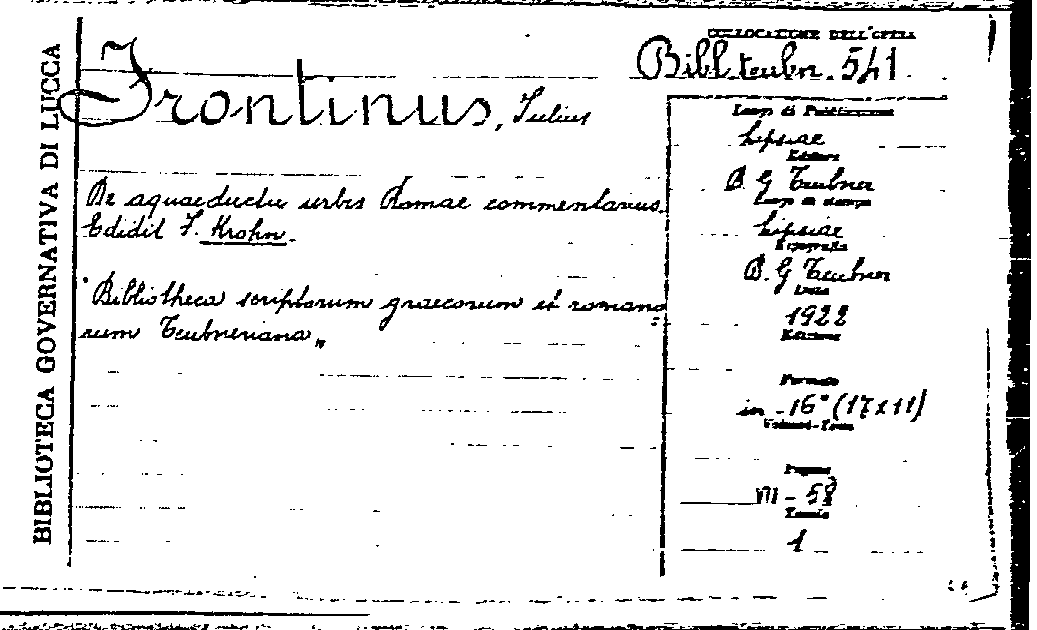 BIBLIOTECA GOVERNATIVA DI LUCCA
Frontinus, Julius
De aquaeductu urbis Romae commentarius.
Edidit F. Krohn.
"Bibliotheca scriptorum graecorum et romano=
rum Teubneriana"
COLLOCAZIONE DELL'OPERA
Bibl. teubn. 541
Luogo di Pubblicazione
Lipsiae
Editore
B. G Teubner
Luogo di stampa
Lipsiae
Tipografia
B. G Teubner
Data
1922
Edizione
Formato
in - 16° (17x11)
Volumi-Tomi
Pagine
VII - 58
Tavole
1